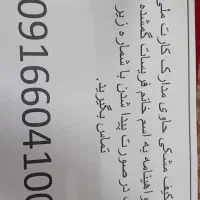 کیف مشکی حاوی مدارک کارت ملی
واهینامه به اسم خانم فریسات گمشده
در صورت پیدا شدن با شماره زیر
تماس بگیرید.
0916604100